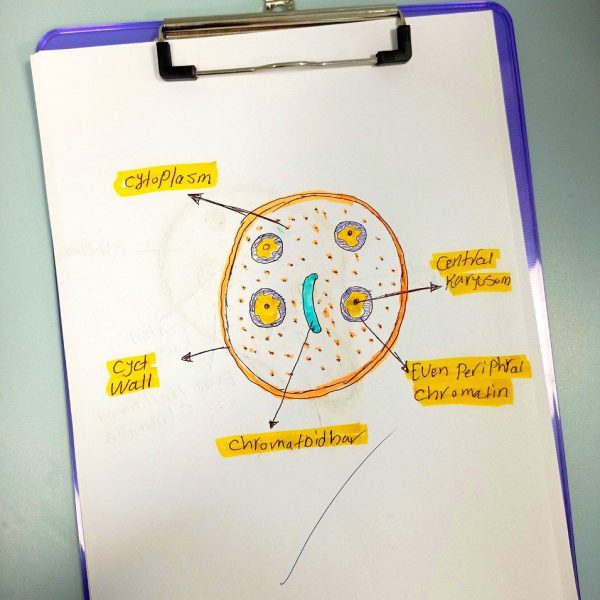 cytoplasm
Central
Karyosom
Cyct
Wall
Even Periphral
chromatin
chromatoidbar